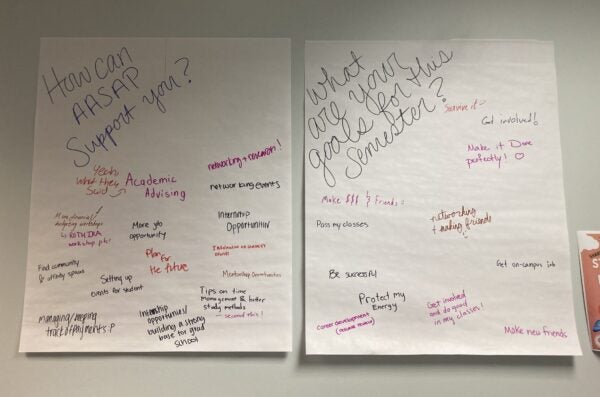 How can
AASAP
Support you?
Yeah
what they
said
Academic
Advising
networking + research!
networking events
More financial/
budgeting workshops
ROTH IRA
workshop plz!
More
opportunity
Internship
Opportunities
Plan For
the future
Find community
& affinity spaces
Setting up
events for student
Mentorship Opportunities
Tips on time
management & better
study methods
- second this!
Managing/keeping
track of payments :P
Internship
opportunities/
building a strong
base for grad
school
What
are your
goals for this
Semester?
Survive it
Get involved!
Make it Done
perfectly! ♡
Make $$$ & Friends :
Pass my classes
networking
+ making friends
Be successful
Get on-campus job
Protect my
Energy
Get involved
and do good
in my classes!
Career development
(resume review)
Make new friends